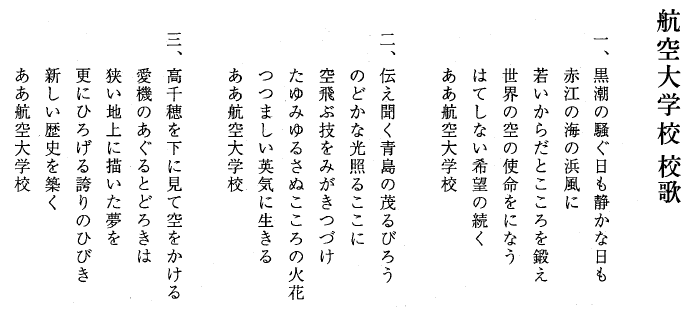 航空大学校 校歌
一、黒潮の騒ぐ日も静かな日も
赤江の海の浜風に
若いからだとこころを鍛え
世界の空の使命をになう
はてしない希望の続く
ああ航空大学校
二、伝え聞く青島の茂るびろう
のどかな光照るここに
空飛ぶ技をみがきつづけ
たゆみゆるさぬこころの火花
つつましい英気に生きる
ああ航空大学校
三、高千穂を下に見て空をかける
愛機のあぐるとどろきは
狭い地上に描いた夢を
更にひろげる誇りのひびき
新しい歴史を築く
ああ航空大学校